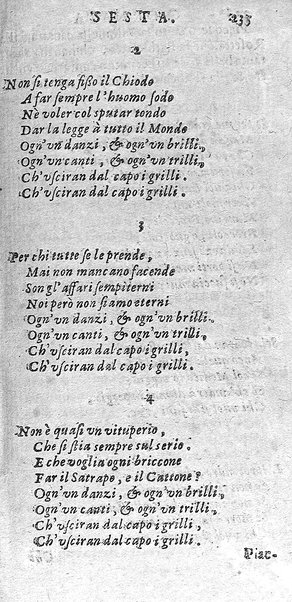 SESTA. 235
2
Non si tenga fißo il Chiodo
A far sempre l'huomo sodo
Nè voler col sputar tondo
Dar la legge à tutto il Mondo
Ogn'vn danzi, & ogn'vn brilli,
Ogn'vn canti, & ogn'vn trilli,
Ch'vsciran dal capo i grilli,
Ch'vsciran dal capo i grilli.
3
Per chi tutte se le prende,
Mai non mancano facende
Son gl'affari sempiterni
Noi però non siamo eterni
Ogn'vn danzi, & ogn'vn brilli,
Ogn'vn canti, & ogn'vn trilli,
Ch'vsciran dal capo i grilli,
Ch'vsciran dal capo i grilli.
4
Non è quasi vn vituperio,
Che si stia sempre sul serio.
E che voglia ogni briccone
Far il Satrape, e il Cattone?
Ogn'vn danzi, & ogn'vn brilli,
Ogn'vn canti, & ogn'vn trilli,
Ch'vsciran dal capo i grilli,
Ch'vsciran dal capo i grilli.
Piac-